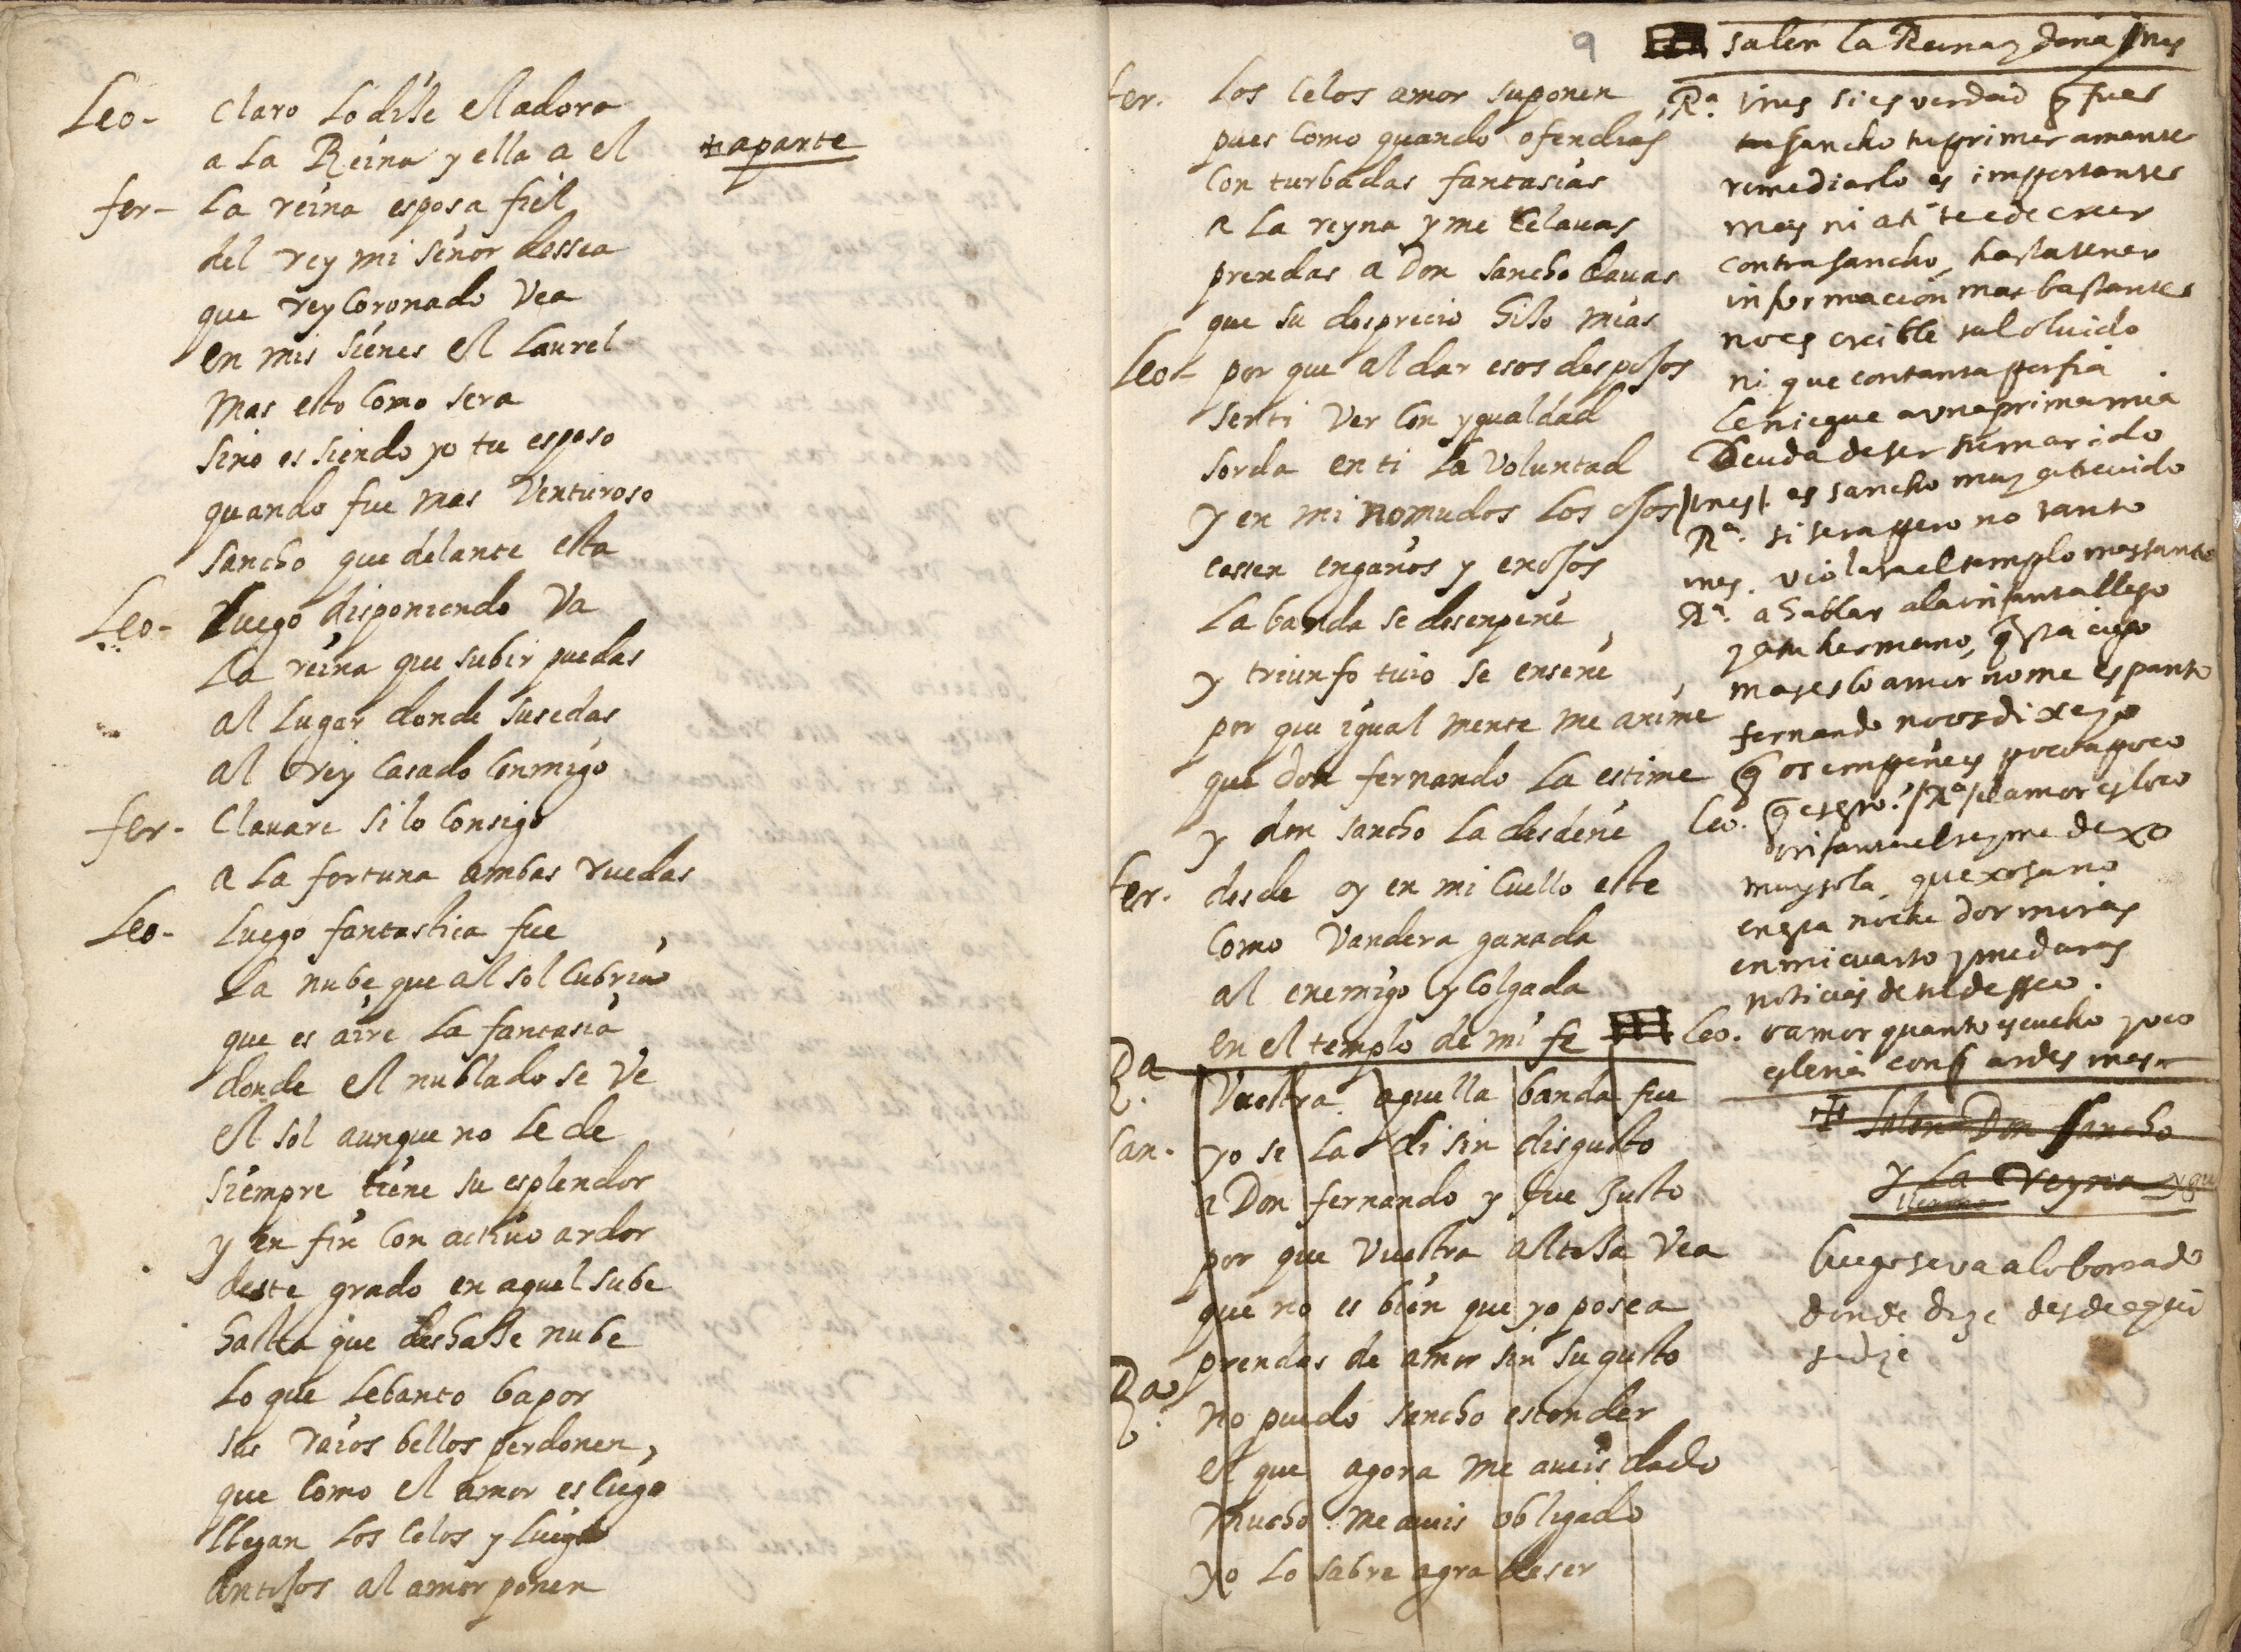 Leo- claro lo dise el adora
a la Reina y ella a el aparte
fer- la reina esposa fiel
del rey mi señor dessea
que rey coronado vea
en mis sienes el laurel
mas esto como sera
sino es siendo yo tu esposo
quando fue mas venturoso
sancho que delante esta
Leo- luego disponiendo va
la reina que subir puedas
al lugar donde susedas
al rey casado conmigo
fer- clavare si lo consigo
a la fortuna ambas ruedas
Leo- luego fantastica fue
la nube que al sol cubria
que es aire la fantasia
donde el nublado se ve
el sol aunque no le de
siempre tiene su esplendor
y en fin con activo ardor
deste grado en aquel sube
hasta que deshasse nube
lo que lebanto bapor
sus raios bellos perdonen,
que como el amor es ciego
llegan los celos y luego
antojos al amor ponen
9
fer. los celos amor suponen
pues como quando ofendias
con turbadas fantasias
a la reyna y me celavas
prendas a Don sancho davas
que su desprecio hiso mias
Leo- por que al dar esos despojos
senti ver con ygualdad
sorda en ti la voluntad
y en mi no mudos los ojos
cessen engaños y enojos
la banda se desenpeñe
y triunfo tuio se enseñe
por que igual mente me anime
que don fernando la estime
y don sancho la desdeñe
fer. desde oy en mi cuello este
como vandera ganada
al enemigo y colgada
en el templo de mi fe
Ra. Vuestra aquella banda fue
san. yo se la di sin disgusto
a Don fernando y fue justo
por que vuestra altesa vea
que no es bien que yo posea
prendas de amor sin su gusto
Ra. no puedo sancho esconder
el que agora me aveis dado
mucho me aveis obligado
yo lo sabre agradeser
salen la Reina y doña ynes
Rª. ynes si es verdad q fues
sancho tu primer amante
remediarlo es importante
mas ni a ti te e de creer
contra sancho, hasta tener
informacion mas bastante
no es creible tal olvido
ni que con tanta porfia
le niegue a una prima mia
deuda de ser su marido
ynes. es sancho muy atrevido
Rª. si sera pero no tanto
ines. violara el templo mas santo
Rª. a hablar a la infanta llego
y a tu hermano, q esta ciego
mas es lo amor no me espanto
fernando no os dixe yo
q os empeñeis poco a poco
Leo. q es esto? Rª el amor es loco
infanta el rey me dexo
muy sola, quexosa no
en esta noche dormiras
en mi cuarto y me daras
noticias de tu desseo.
Leo. o amor quanto escucho y veo
salen Don sancho
y la reyna
luego se va a lo borrado
donde dize desde aqui
se dize